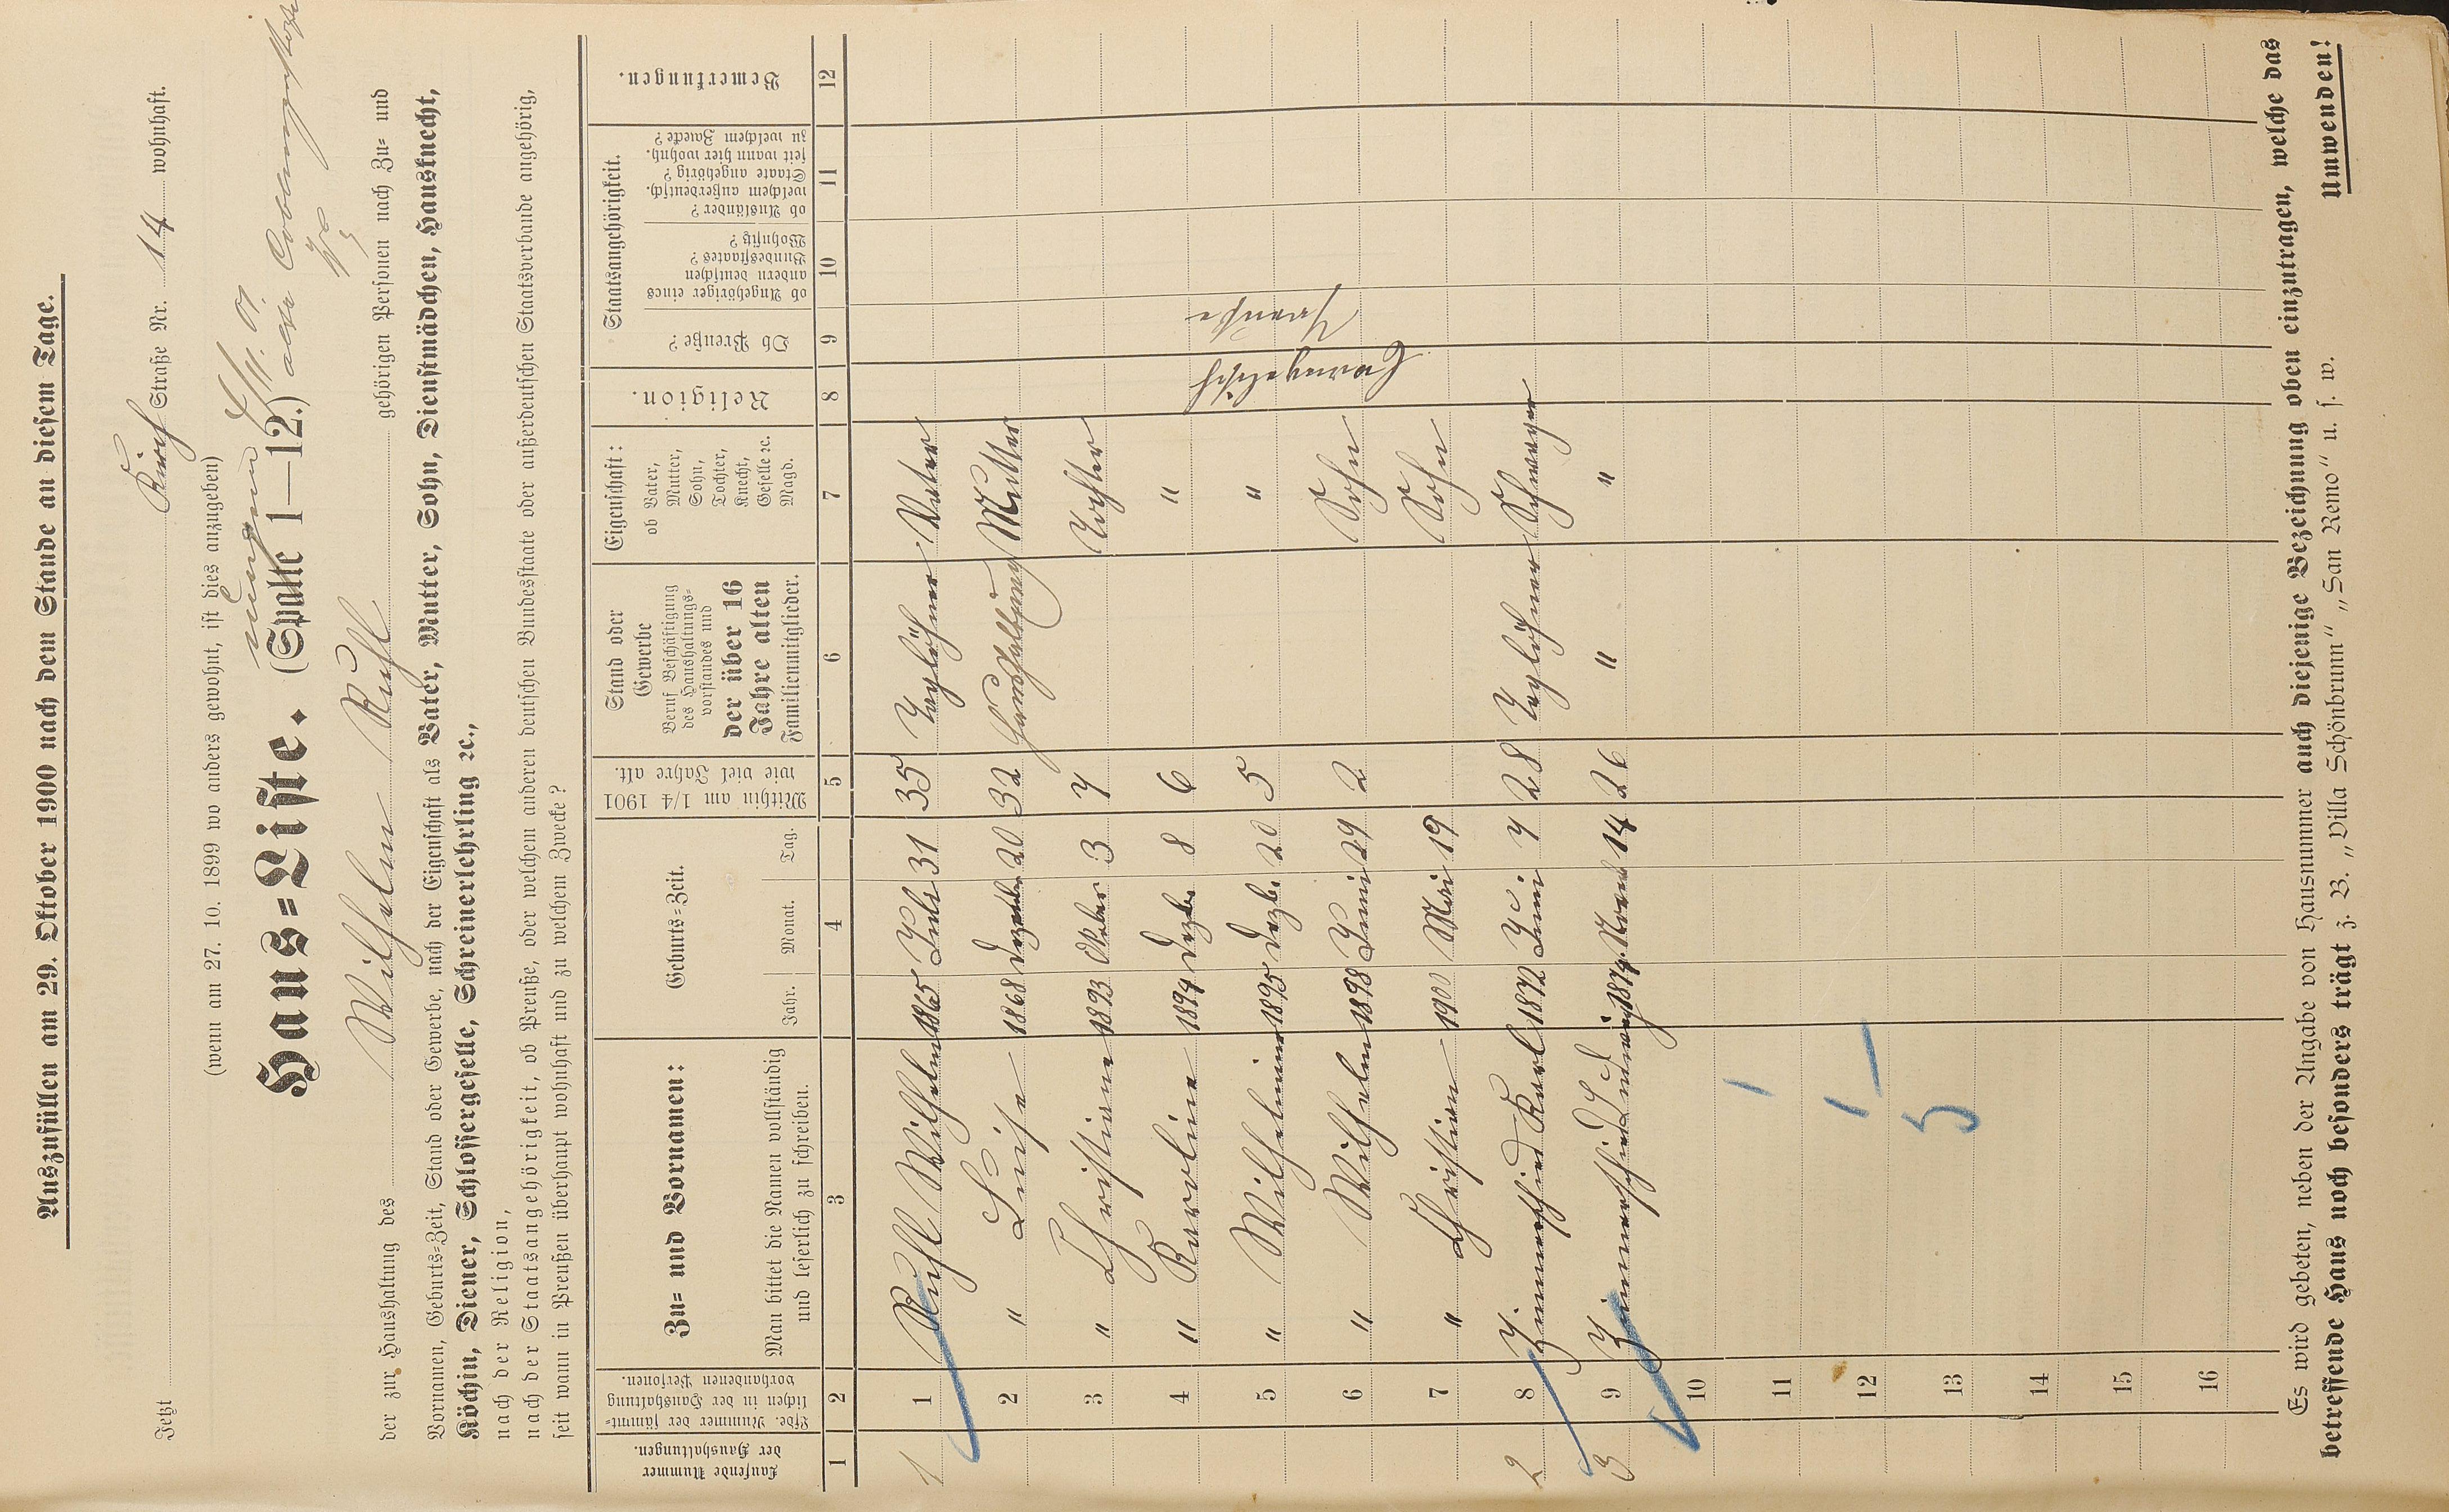 Auszufüllen am 29. Oktober 1900 nach dem Stande an diesem Tage.
Jetzt Kirch Straße Nr. 14 wohnhaft.
(wenn am 27. 10. 1899 wo anders gewohnt, ist dies anzugeben)
Haus=Liste. (Spalte 1—12.)
der zur Haushaltung des Wilhelm Ruhl gehörigen Personen nach Zu= und
Vornamen, Geburts=Zeit, Stand oder Gewerbe, nach der Eigenschaft als Vater, Mutter, Sohn, Dienstmädchen, Hausknecht,
Köchin, Diener, Schlossergeselle, Schreinerlehrling ꝛc.,
nach der Religion,
nach der Staatsangehörigkeit, ob Preuße, oder welchem anderen deutschen Bundesstaate oder außerdeutschen Staatsverbande angehörig,
seit wann in Preußen überhaupt wohnhaft und zu welchem Zwecke?
Laufende Nummer der Haushaltungen.
Lfde. Nummer der sämmt=lichen in der Haushaltung vorhandenen Personen.
Zu= und Vornamen:
Man bittet die Namen vollständig
und leserlich zu schreiben.
Geburts=Zeit.
Jahr. Monat. Tag.
Mithin am 1/4 1901
wie viel Jahre alt.
Stand oder
Gewerbe
Beruf Beschäftigung
des Haushaltungs=
vorstandes und
der über 16
Jahre alten
Familienmitglieder.
Eigenschaft:
ob Vater,
Mutter,
Sohn,
Tochter,
Knecht,
Geselle ꝛc.
Magd.
Religion.
Staatsangehörigkeit.
Ob Preuße?
ob Angehöriger eines
andern deutschen
Bundesstaates?
Wohnsitz?
ob Ausländer?
welchem außerdeutsch.
Staate angehörig?
seit wann hier wohnh.
zu welchem Zwecke?
Bemerkungen.
1 2 3 4 5 6 7 8 9 10 11 12
1 1 Ruhl Wilhelm 1865 Juli 31 35 Taglöhner Vater
2 " Luise 1868 Dezember 20 32 Haushaltung Mutter
3 " Christiane 1893 Oktober 3 7 Tochter
4 " Karoline 1894 Dezbr 8 6 "
5 " Wilhelmine 1895 Dezbr 20 5 "
6 " Wilhelm 1898 Juni 29 2 Sohn
7 " Christian 1900 Mai 19 Sohn
Evangelisch
Preuße
2 8 Zimmerschied Karl 1872 Juni 7 28 Taglöhner Schwager
3 9 Zimmerschied Ludwig 1874 14 26 " "
10
11
12
13
14
15
16
Es wird gebeten, neben der Angabe von Hausnummer auch diejenige Bezeichnung oben einzutragen, welche das
betreffende Haus noch besonders trägt z. B. „Villa Schönbrunn" „San Remo" u. s. w.
Umwenden!